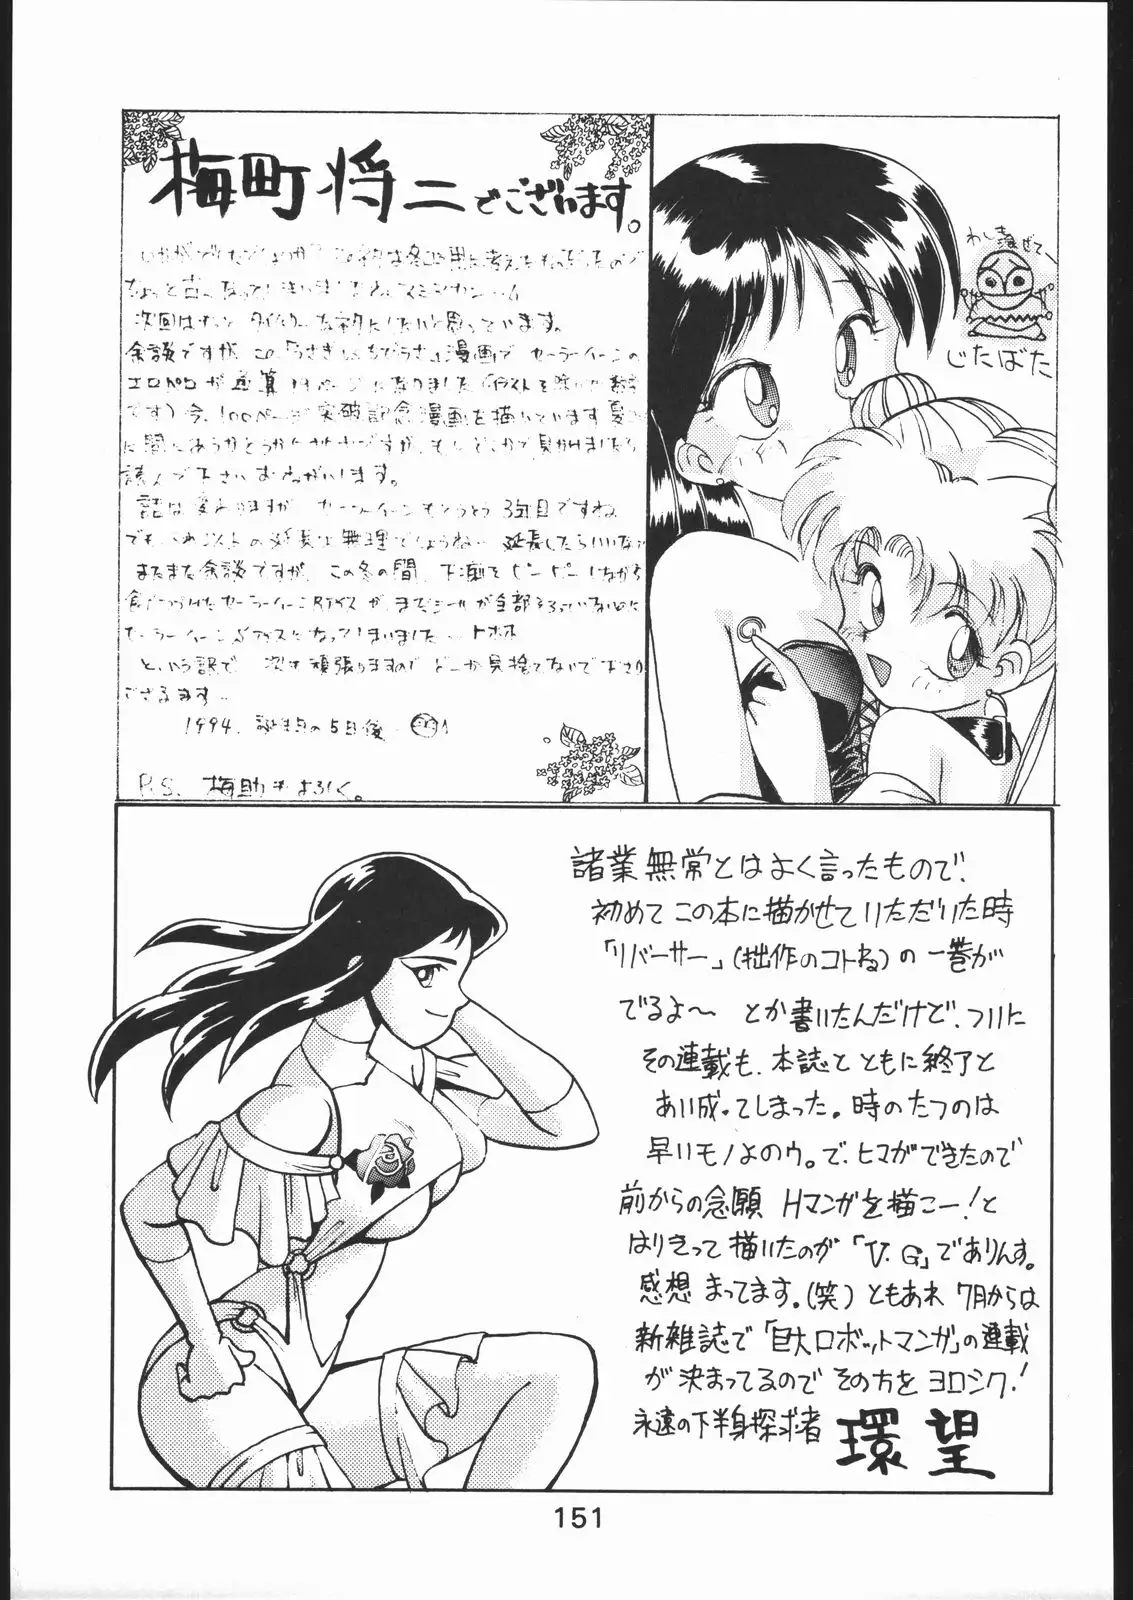 梅町将二でございます。
ちょっと古くなってしまいましたね
次回はもっとタイムリーなネタにしたいと思っています。
余談ですが、この「うさぎ 漫画でセーラームーンの
エロパロが通算 ページになりました(イラストを除いた数字
です)今、100ページ突破記念漫画を描いています夏
に間にあうかどうか ですが、もしどこかで見かけましたら
読んで下さいおねがいします。
話は変わりますが セーラームーンもとうとう3年目ですね
でも の延長は無理でしょうね… 延長したらいいな
またまた余談ですが、この冬の間、下痢でピーピーしながら
食べつづけたセーラームーンRアイスが、まだシールが全部そろっていないのに
セーラームーンSアイスになってしまいました…トホホ
という訳で 次も頑張りますので どーか見捨てないで下さり
ござるます…
1994. 誕生日の5日後
P.S. 梅助もよろしく。
わしも混ぜて、
じたばた
諸業無常とはよく言ったもので、
初めてこの本に描かせていただいた時
「リバーサー」(拙作のコトね)の一巻が
でるよ〜 とか書いたんだけど、ついに
その連載も、本誌とともに終了と
あい成ってしまった。時のたつのは
早いモノよのウ。で、ヒマができたので
前からの念願 Hマンガを描こー!と
はりきって描いたのが「V.G」でありんす。
感想まってます。(笑)ともあれ 7月からは
新雑誌で「巨大ロボットマンガ」の連載
が決まってるので その方をヨロシク!
永遠の下半身探求者 環望
151